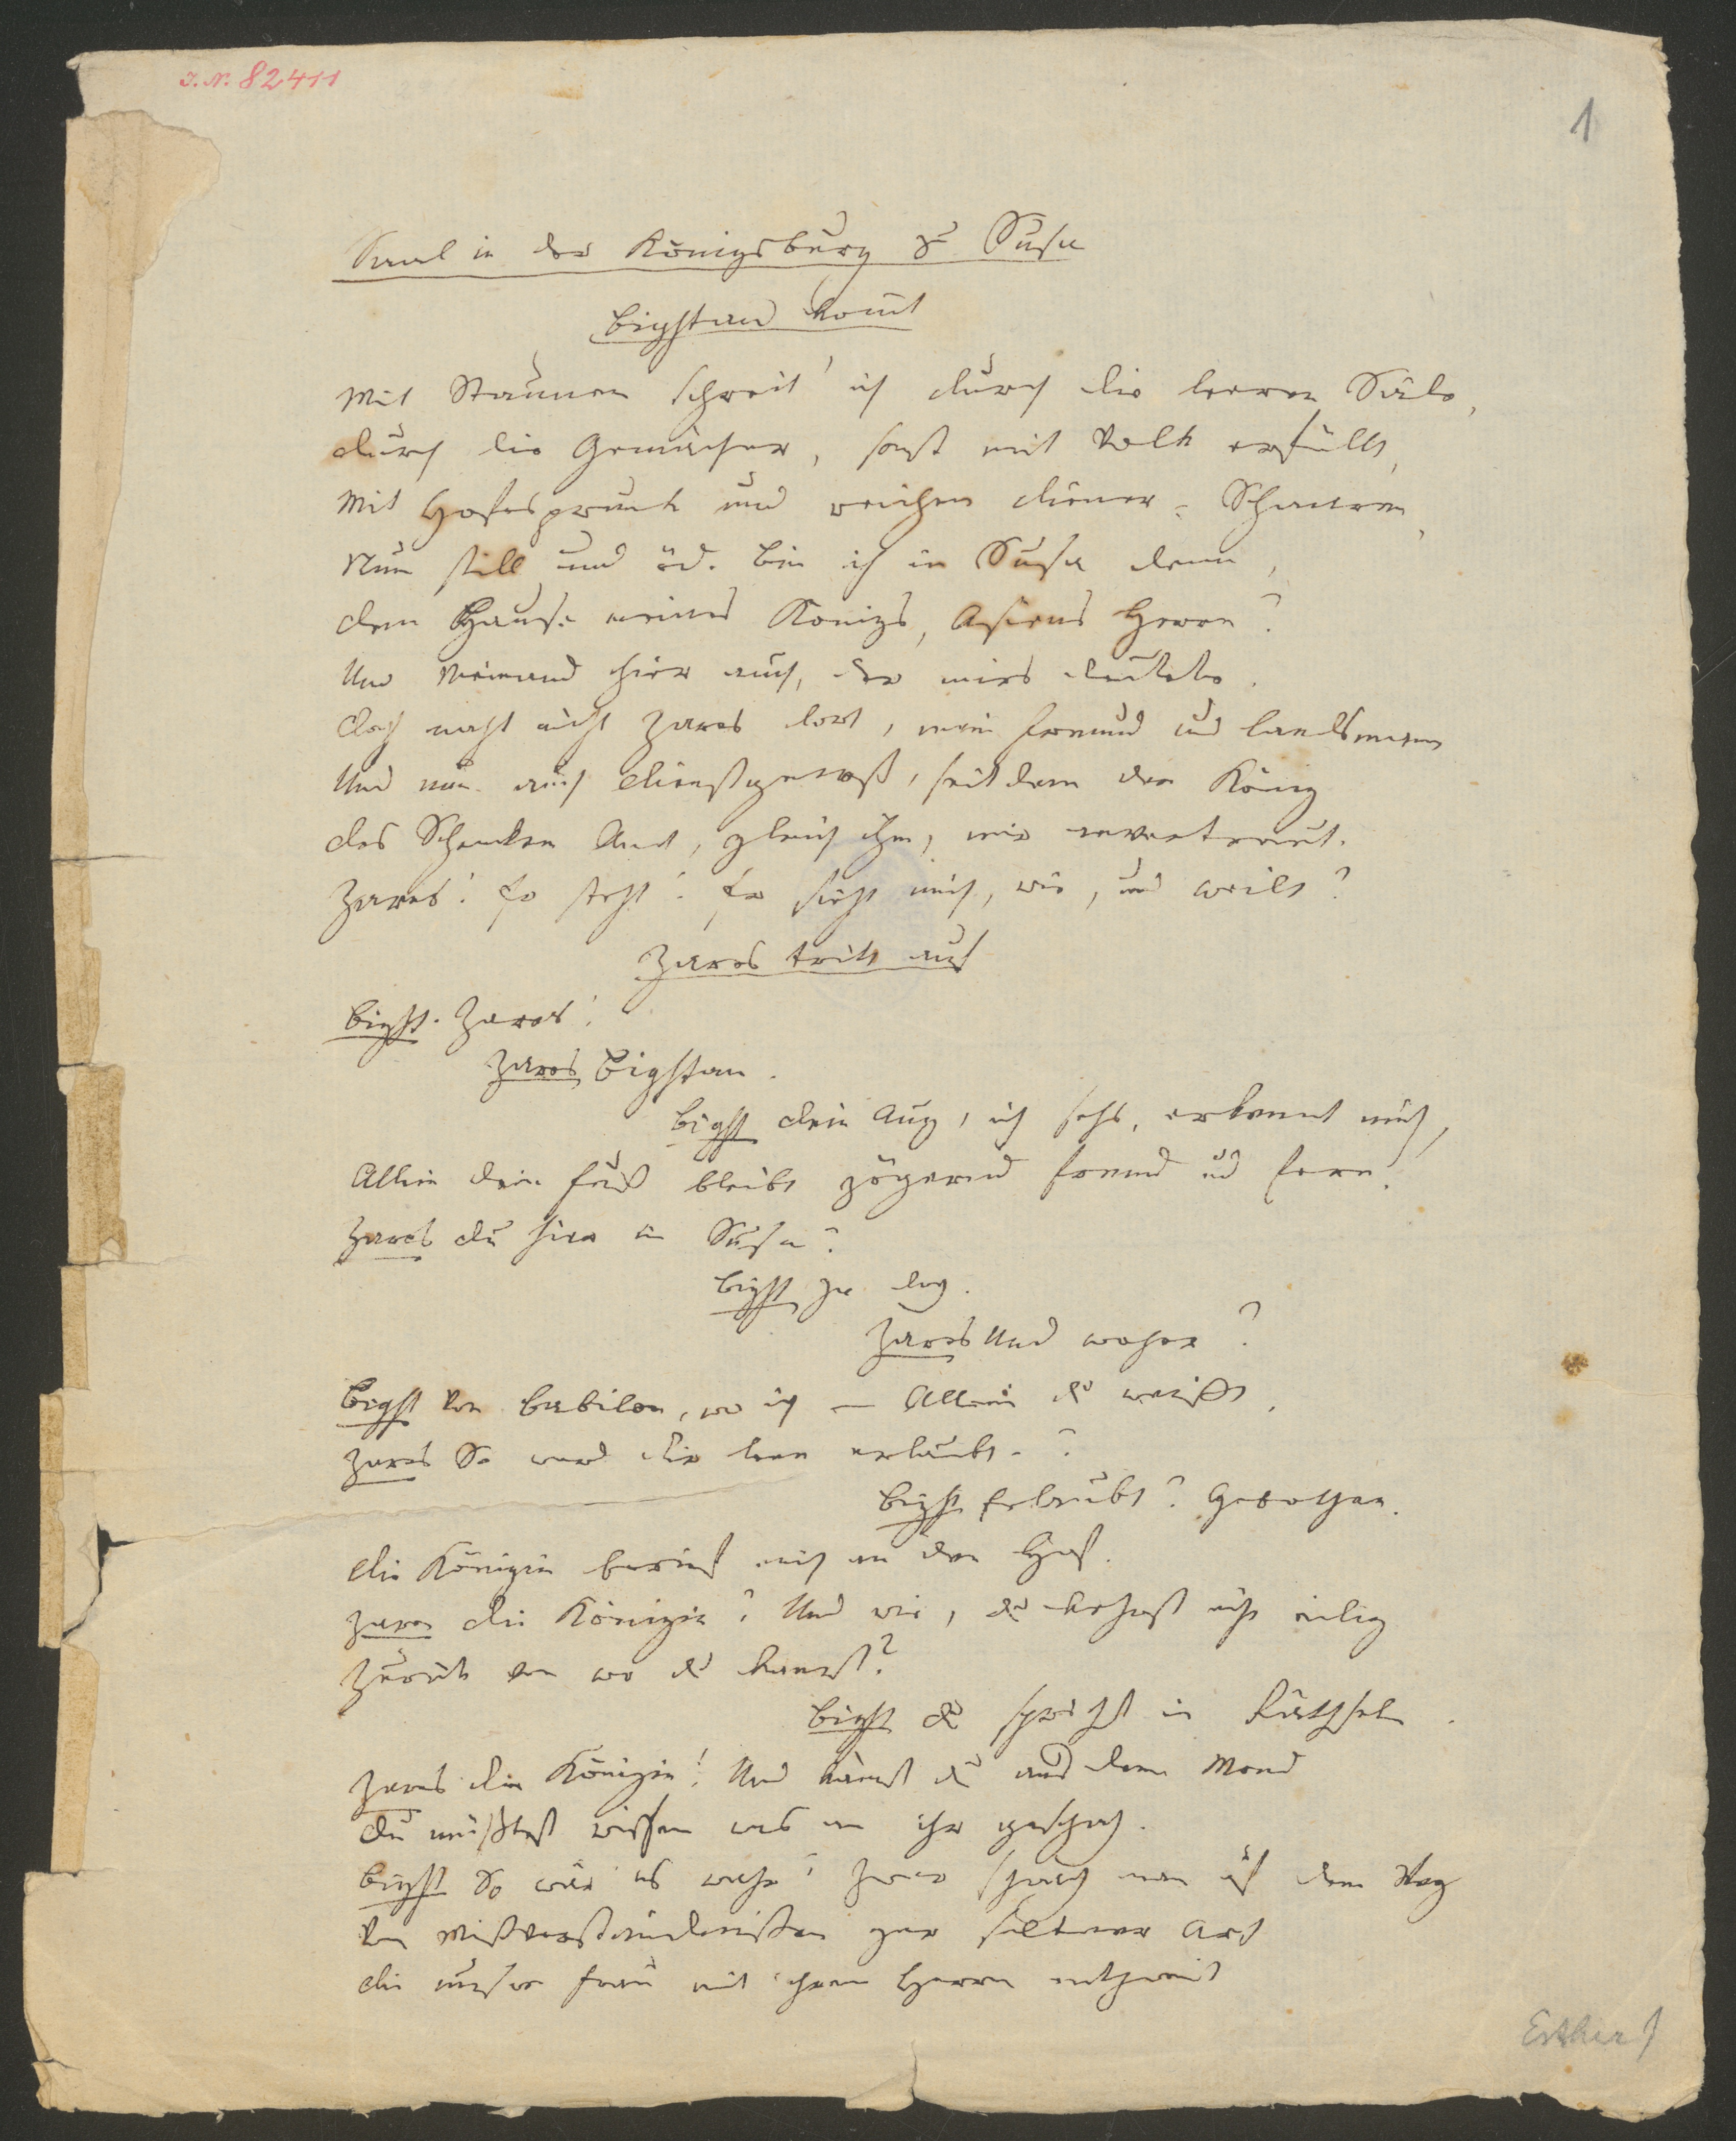 I. N. 82411
1
Saal in der Königsburg zu Susa
Bigthan kom̄t
Mit Staunen schreit' ich durch die leeren Säle,
durch die Gemächer, sonst mit Volk erfüllt,
Mit Hofesprunk und reichen Diener-Scharen,
Nun still und öd. Bin ich in Susa denn,
dem Hause meines Königs, Asiens Herrn?
Und Niemand hier auch, der mirs deutete.
doch naht nicht Zares dort, mein Freund und Landsmann
Und nun auch Dienstgenoß, seitdem der König
des Schenken Amt, gleich ihm, mir anvertraut.
Zares! Er steht! Er sieht mich, wie, und weilt?
Zares tritt auf
Bigth. Zares!
Zares Bigthan.
Bigth dein Aug, ich sehs, erkennt mich,
Allein dein Fuß bleibt zögernd fremd und fern.
Zares du hier in Susa?
Bigth Ja doch.
Zares Und woher?
Bigth Von Babilon, wo ich — Allein du weißt.
Zares So ward dir denn erlaubt-?
Bigth Erlaubt? Gebothen.
die Königin berief mich an den Hof.
Zares die Königin? Und wie, du kehrst nicht eilig
Zurück von wo du kamst?
Bigth du sprichst in Räthseln.
Zares die Königin! Und kämst du aus dem Mond
du müßtest wissen was an ihr geschah.
Bigth So wär es wahr? Zwar sprach man auf dem Weg
Von Mißverständnissen gar seltner Art
die unsre Frau mit ihrem Herrn entzweit
Esther